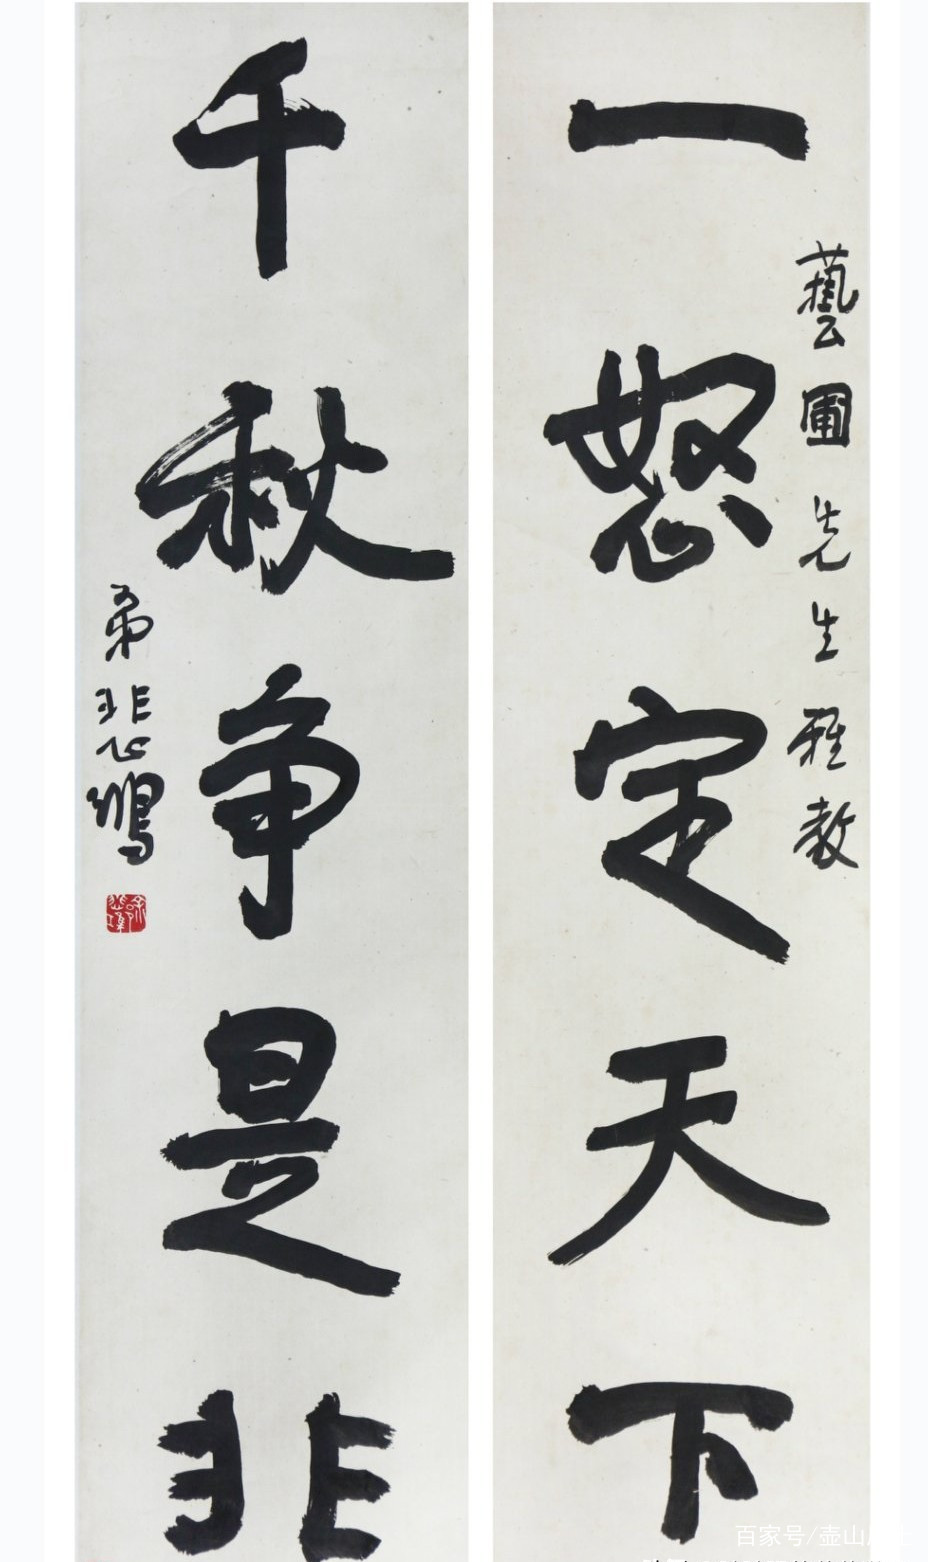 一怒定天下
藝圃先生雅教
千秋争是非
弟悲鴻
百家号/壶山